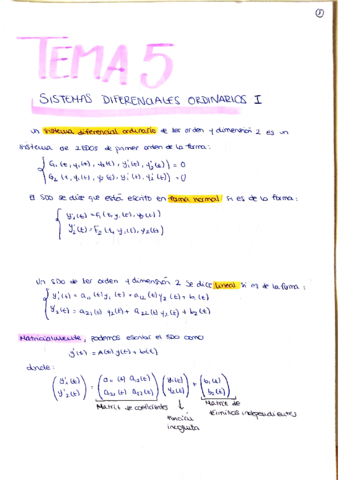 TEMA 5
SISTEMAS DIFERENCIALES ORDINARIOS I
Un sistema diferencial ordinario de 1er orden y dimensión 2 es un
sistema de 2 EDOS de primer orden de la forma:
G₁(t, y₁(t), y₂(t), y₁'(t), y₂'(t)) = 0
G₂(t, y₁(t), y₂(t), y₁'(t), y₂'(t)) = 0
El SDO se dice que está escrito en forma normal si es de la forma:
y₁'(t) = F₁(t, y₁(t), y₂(t))
y₂'(t) = F₂(t, y₁(t), y₂(t))
Un SDO de 1er orden y dimensión 2 se dice lineal si es de la forma:
y₁'(t) = a₁₁(t) y₁(t) + a₁₂(t) y₂(t) + b₁(t)
y₂'(t) = a₂₁(t) y₁(t) + a₂₂(t) y₂(t) + b₂(t)
Matricialmente, podemos escribir el SDO como
y'(t) = A(t) y(t) + b(t)
donde:
(y₁'(t)) = (a₁₁(t) a₁₂(t)) (y₁(t)) + (b₁(t))
(y₂'(t)) (a₂₁(t) a₂₂(t)) (y₂(t)) (b₂(t))
Matriz de coeficientes ↓ Matriz de
Función términos independientes
incógnita